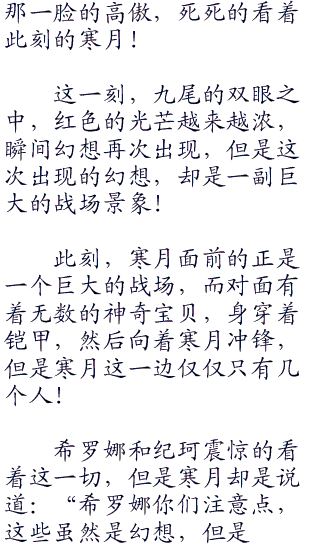 那一脸的高傲，死死的看着
此刻的寒月！
这一刻，九尾的双眼之
中，红色的光芒越来越浓，
瞬间幻想再次出现，但是这
次出现的幻想，却是一副巨
大的战场景象！
此刻，寒月面前的正是
一个巨大的战场，而对面有
着无数的神奇宝贝，身穿着
铠甲，然后向着寒月冲锋，
但是寒月这一边仅仅只有几
个人！
希罗娜和纪珂震惊的看
着这一切，但是寒月却是说
道：“希罗娜你们注意点，
这些虽然是幻想，但是